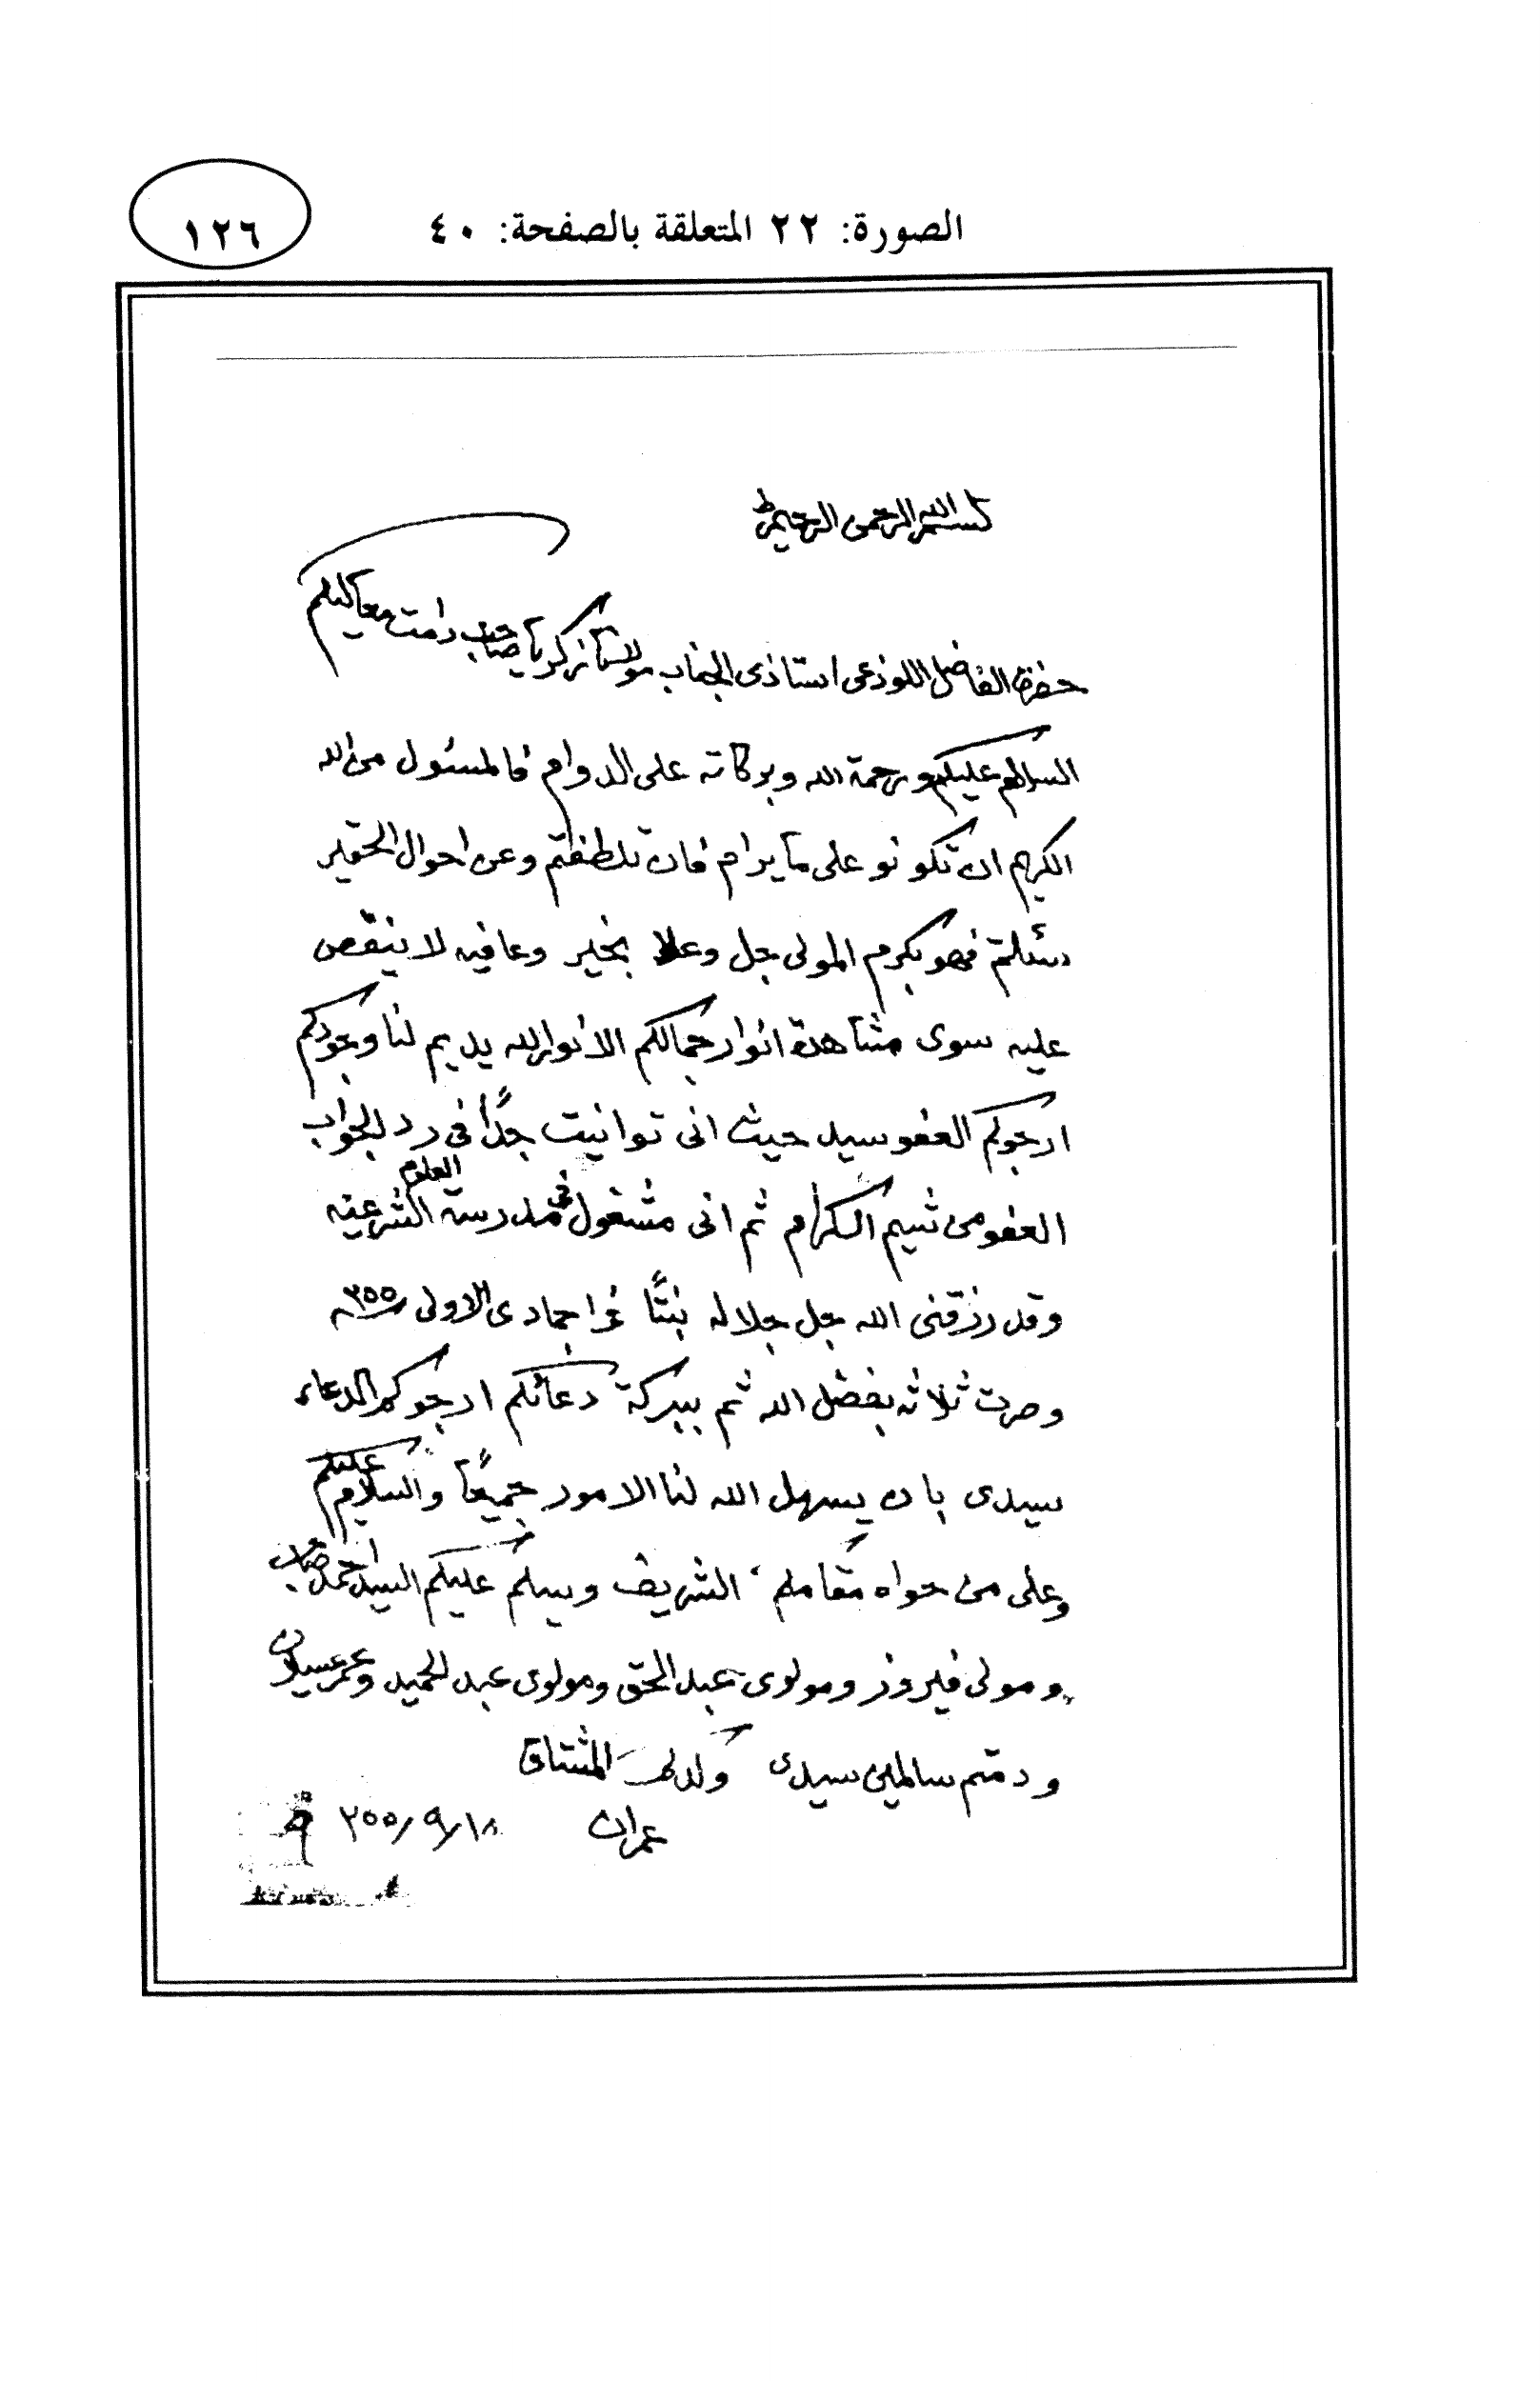 الصورة: ٢٢ المتعلقة بالصفحة: ٤٠
١٢٦
بسم الله الرحمن الرحيم
حضرة الفاضل اللوذعى استاذى الجناب مولانا زكريا صاحب دامت معاليكم
السلام عليكم ورحمة الله وبركاته على الدوام فالمسئول من الله
الكريم ان تكونو على ما يرام فان تلطفتم وعن احوال الحقير
سئلتم فهو بكرم المولى جل وعلا بخير وعافيه لا ينقص
عليه سوى مشاهدة انوار جمالكم الانوار الله يديم لنا وجودكم
ارجوكم العفو سيد حيث انى توانيت جدًا فى رد الجواب
العفو من شيم الكرام ثم انى مشغول فى مدرسة العلوم الشرعيه
وقد رزقنى الله جل جلاله بنتًا غرا جمادى الاولى ٣٥٥
وصرت ثلاثه بفضل الله ثم ببركة دعائكم ارجوكم الدعاء
سيدى بان يسهل الله لنا الامور جميعًا والسلام عليكم
وعلى من حواه مقامكم الشريف ويسلم عليكم السيد احمد صاحب
ومولى فيروز ومولوى عبد الحق ومولوى عبد الحميد وعمر
ودمتم سالمين سيدى ولدكم المشتاق
عمران ١٨/٩/٣٥٥